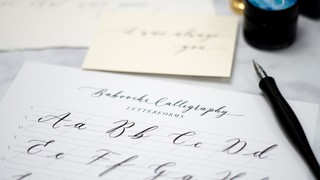 it was always
you
Babooske Calligraphy
LETTERFORMS
Aa Bb Cc Dd
Ee Ff Gg H